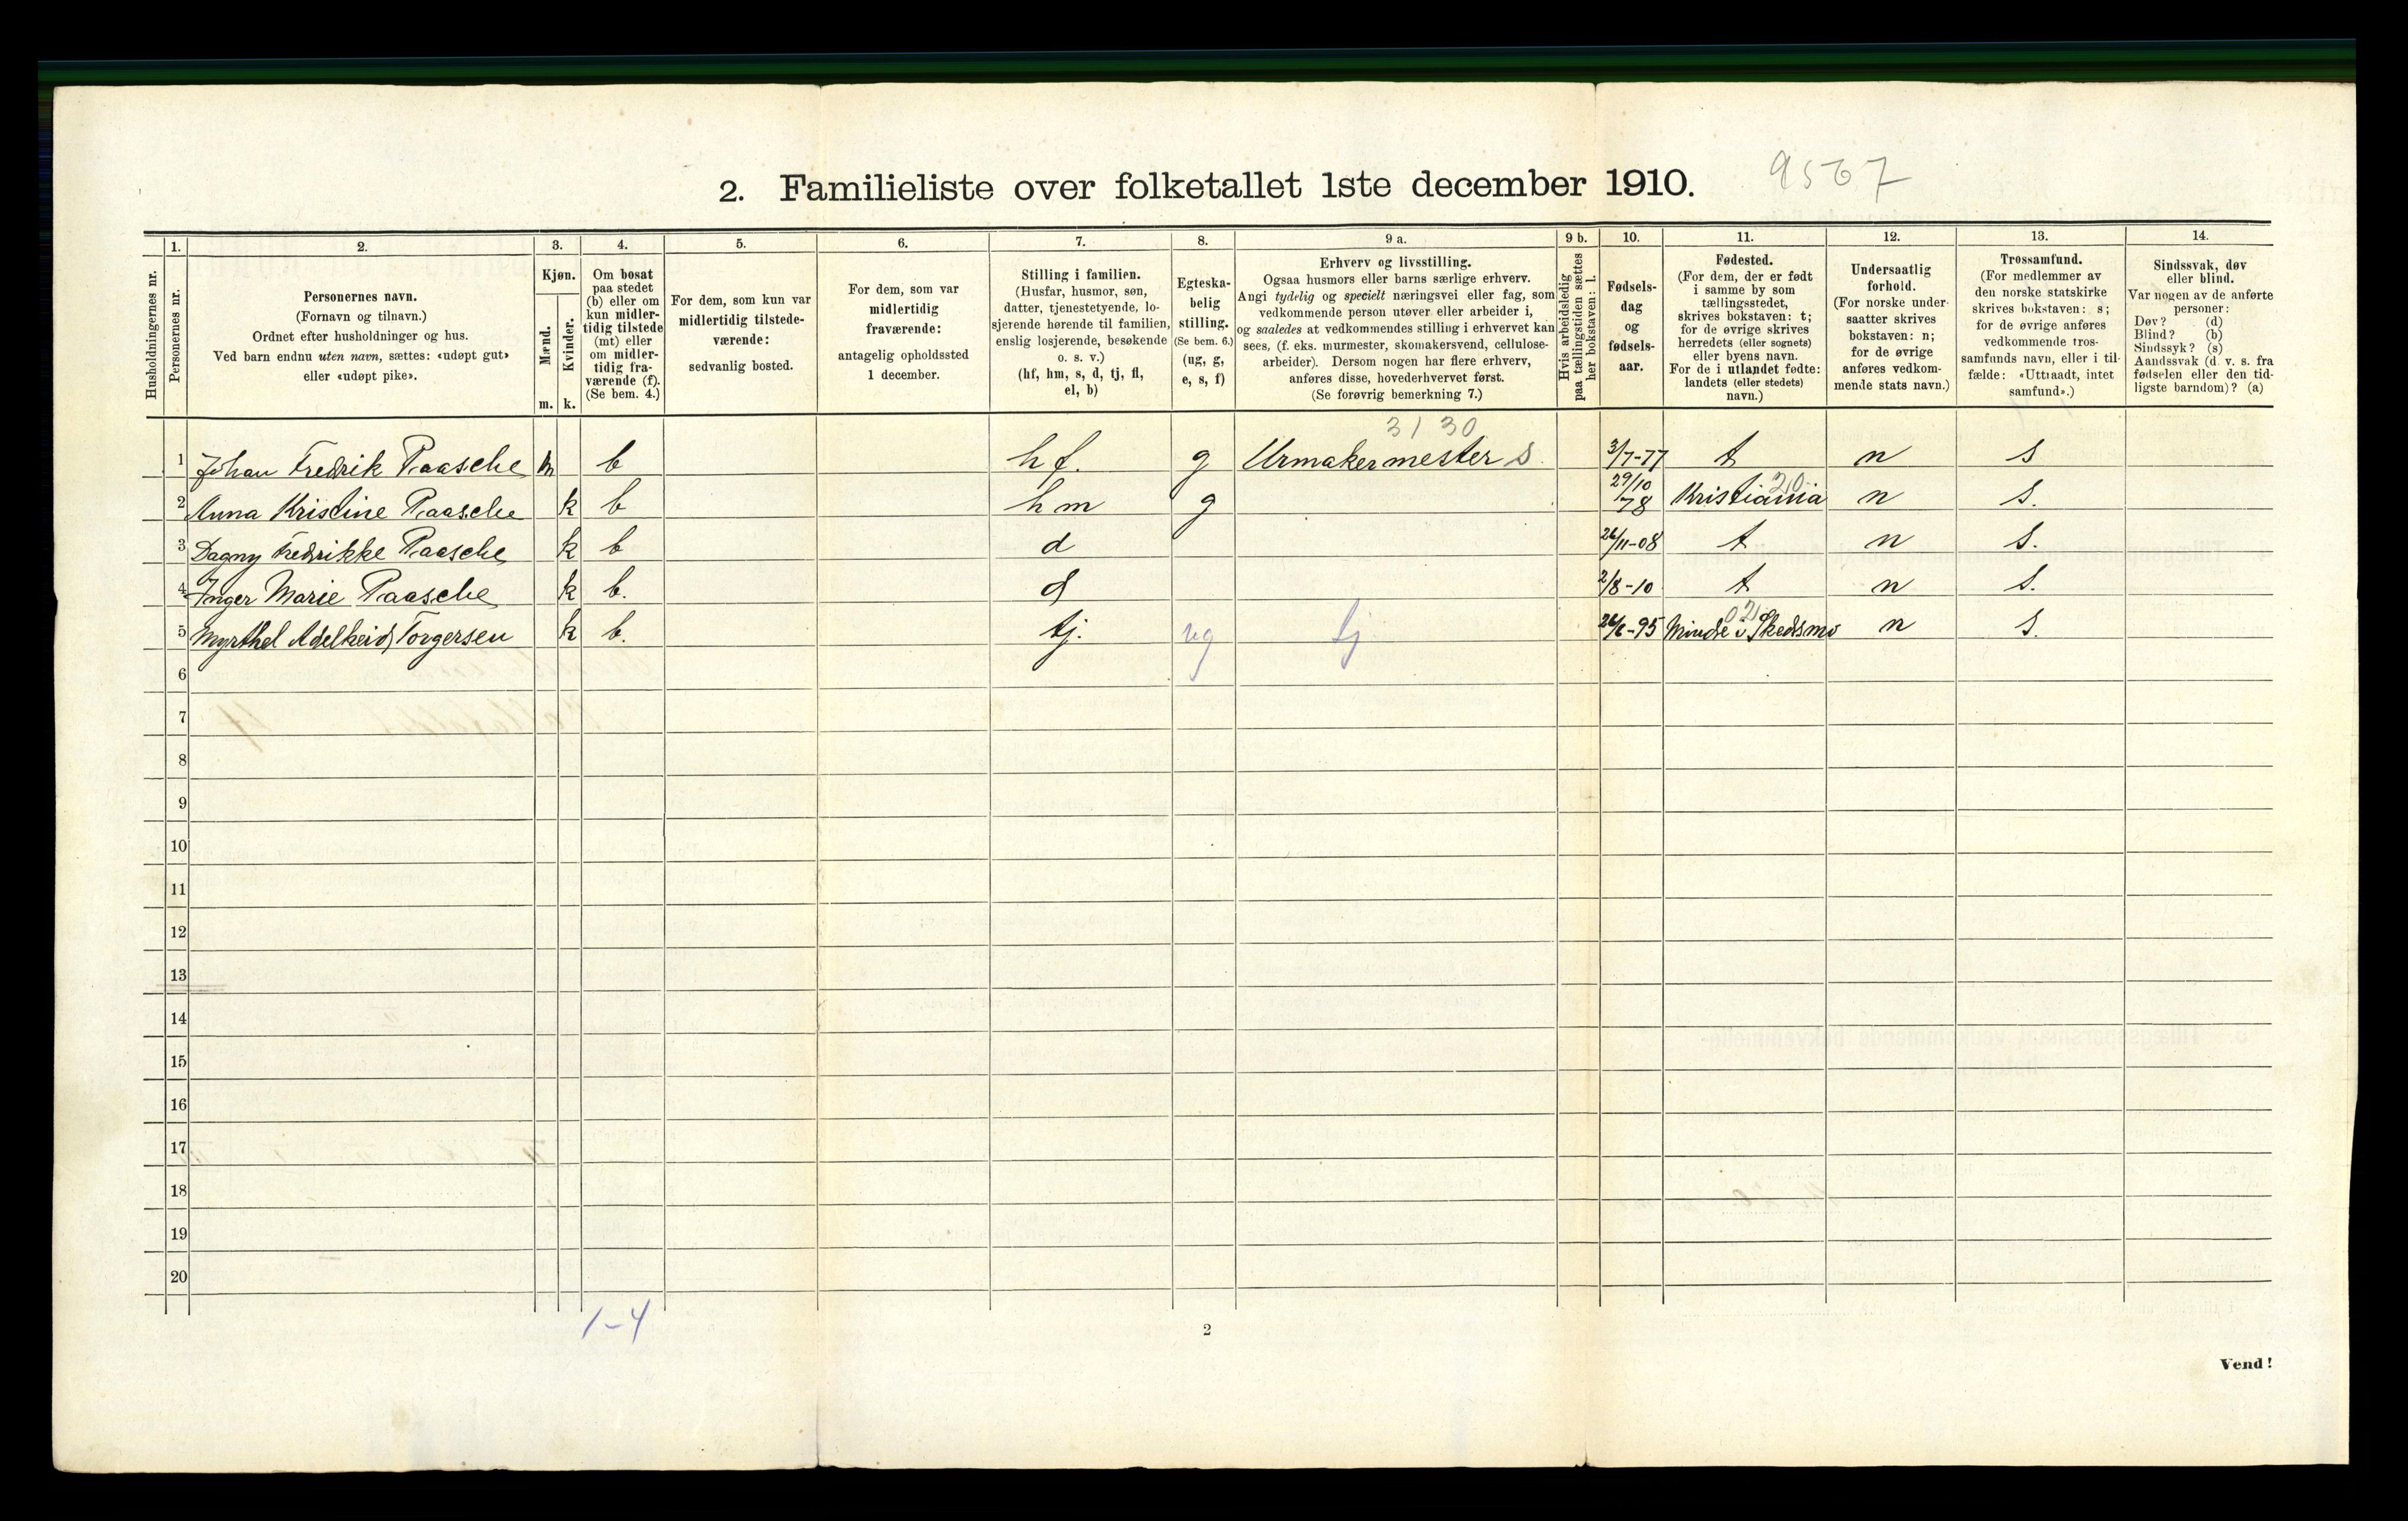 2. Familieliste over folketallet 1ste december 1910. 9567
1. 2. 3. 4. 5. 6. 7. 8. 9 a. 9 b. 10. 11. 12. 13. 14.
Husholdningernes nr.
Personernes nr.
Personernes navn.
(Fornavn og tilnavn.)
Ordnet efter husholdninger og hus.
Ved barn endnu uten navn, sættes: «udøpt gut»
eller «udøpt pike».
Kjøn.
Mænd.
Kvinder.
m. k.
Om bosat
paa stedet
(b) eller om
kun midler-
tidig tilstede
(mt) eller
om midler-
tidig fra-
værende (f).
(Se bem. 4.)
For dem, som kun var
midlertidig tilstede-
værende:
sedvanlig bosted.
For dem, som var
midlertidig
fraværende:
antagelig opholdssted
1 december.
Stilling i familien.
(Husfar, husmor, søn,
datter, tjenestetyende, lo-
sjerende hørende til familien,
enslig losjerende, besøkende
o. s. v.)
(hf, hm, s, d, tj, fl,
el, b)
Egteska-
belig
stilling.
(Se bem. 6.)
(ug, g,
e, s, f)
Erhverv og livsstilling.
Ogsaa husmors eller barns særlige erhverv.
Angi tydelig og specielt næringsvei eller fag, som
vedkommende person utøver eller arbeider i,
og saaledes at vedkommendes stilling i erhvervet kan
sees, (f. eks. murmester, skomakersvend, cellulose-
arbeider). Dersom nogen har flere erhverv,
anføres disse, hovederhvervet først.
(Se forøvrig bemerkning 7.)
Hvis arbeidsledig
paa tællingstiden sættes
her bokstaven: l.
Fødsels-
dag
og
fødsels-
aar.
Fødested.
(For dem, der er født
i samme by som
tællingsstedet,
skrives bokstaven: t;
for de øvrige skrives
herredets (eller sognets)
eller byens navn.
For de i utlandet fødte:
landets (eller stedets)
navn.)
Undersaatlig
forhold.
(For norske under-
saatter skrives
bokstaven: n;
for de øvrige
anføres vedkom-
mende stats navn.)
Trossamfund.
(For medlemmer av
den norske statskirke
skrives bokstaven: s;
for de øvrige anføres
vedkommende tros-
samfunds navn, eller i til-
fælde: «Uttraadt, intet
samfund».)
Sindssvak, døv
eller blind.
Var nogen av de anførte
personer:
Døv? (d)
Blind? (b)
Sindssyk? (s)
Aandssvak (d. v. s. fra
fødselen eller den tid-
ligste barndom)? (a)
3130
1 Johan Fredrik Paasche m b hf. g Urmakermester s. 3/7-77 t n s
20
2 Anna Kristine Paasche k b hm g 29/10 78 Kristiania n s.
3 Dagny Fredrikke Paasche k b d 26/11-08 t n s.
4 Inger Marie Paasche k b. d 2/8-10 t n s.
02
5 Myrthel Adelheid Torgersen k b. tj. ug tj 26/6-95 Minde i Skedsmo n s.
6
7
8
9
10
11
12
13
14
15
16
17
18
19
20
1-4
2
Vend!